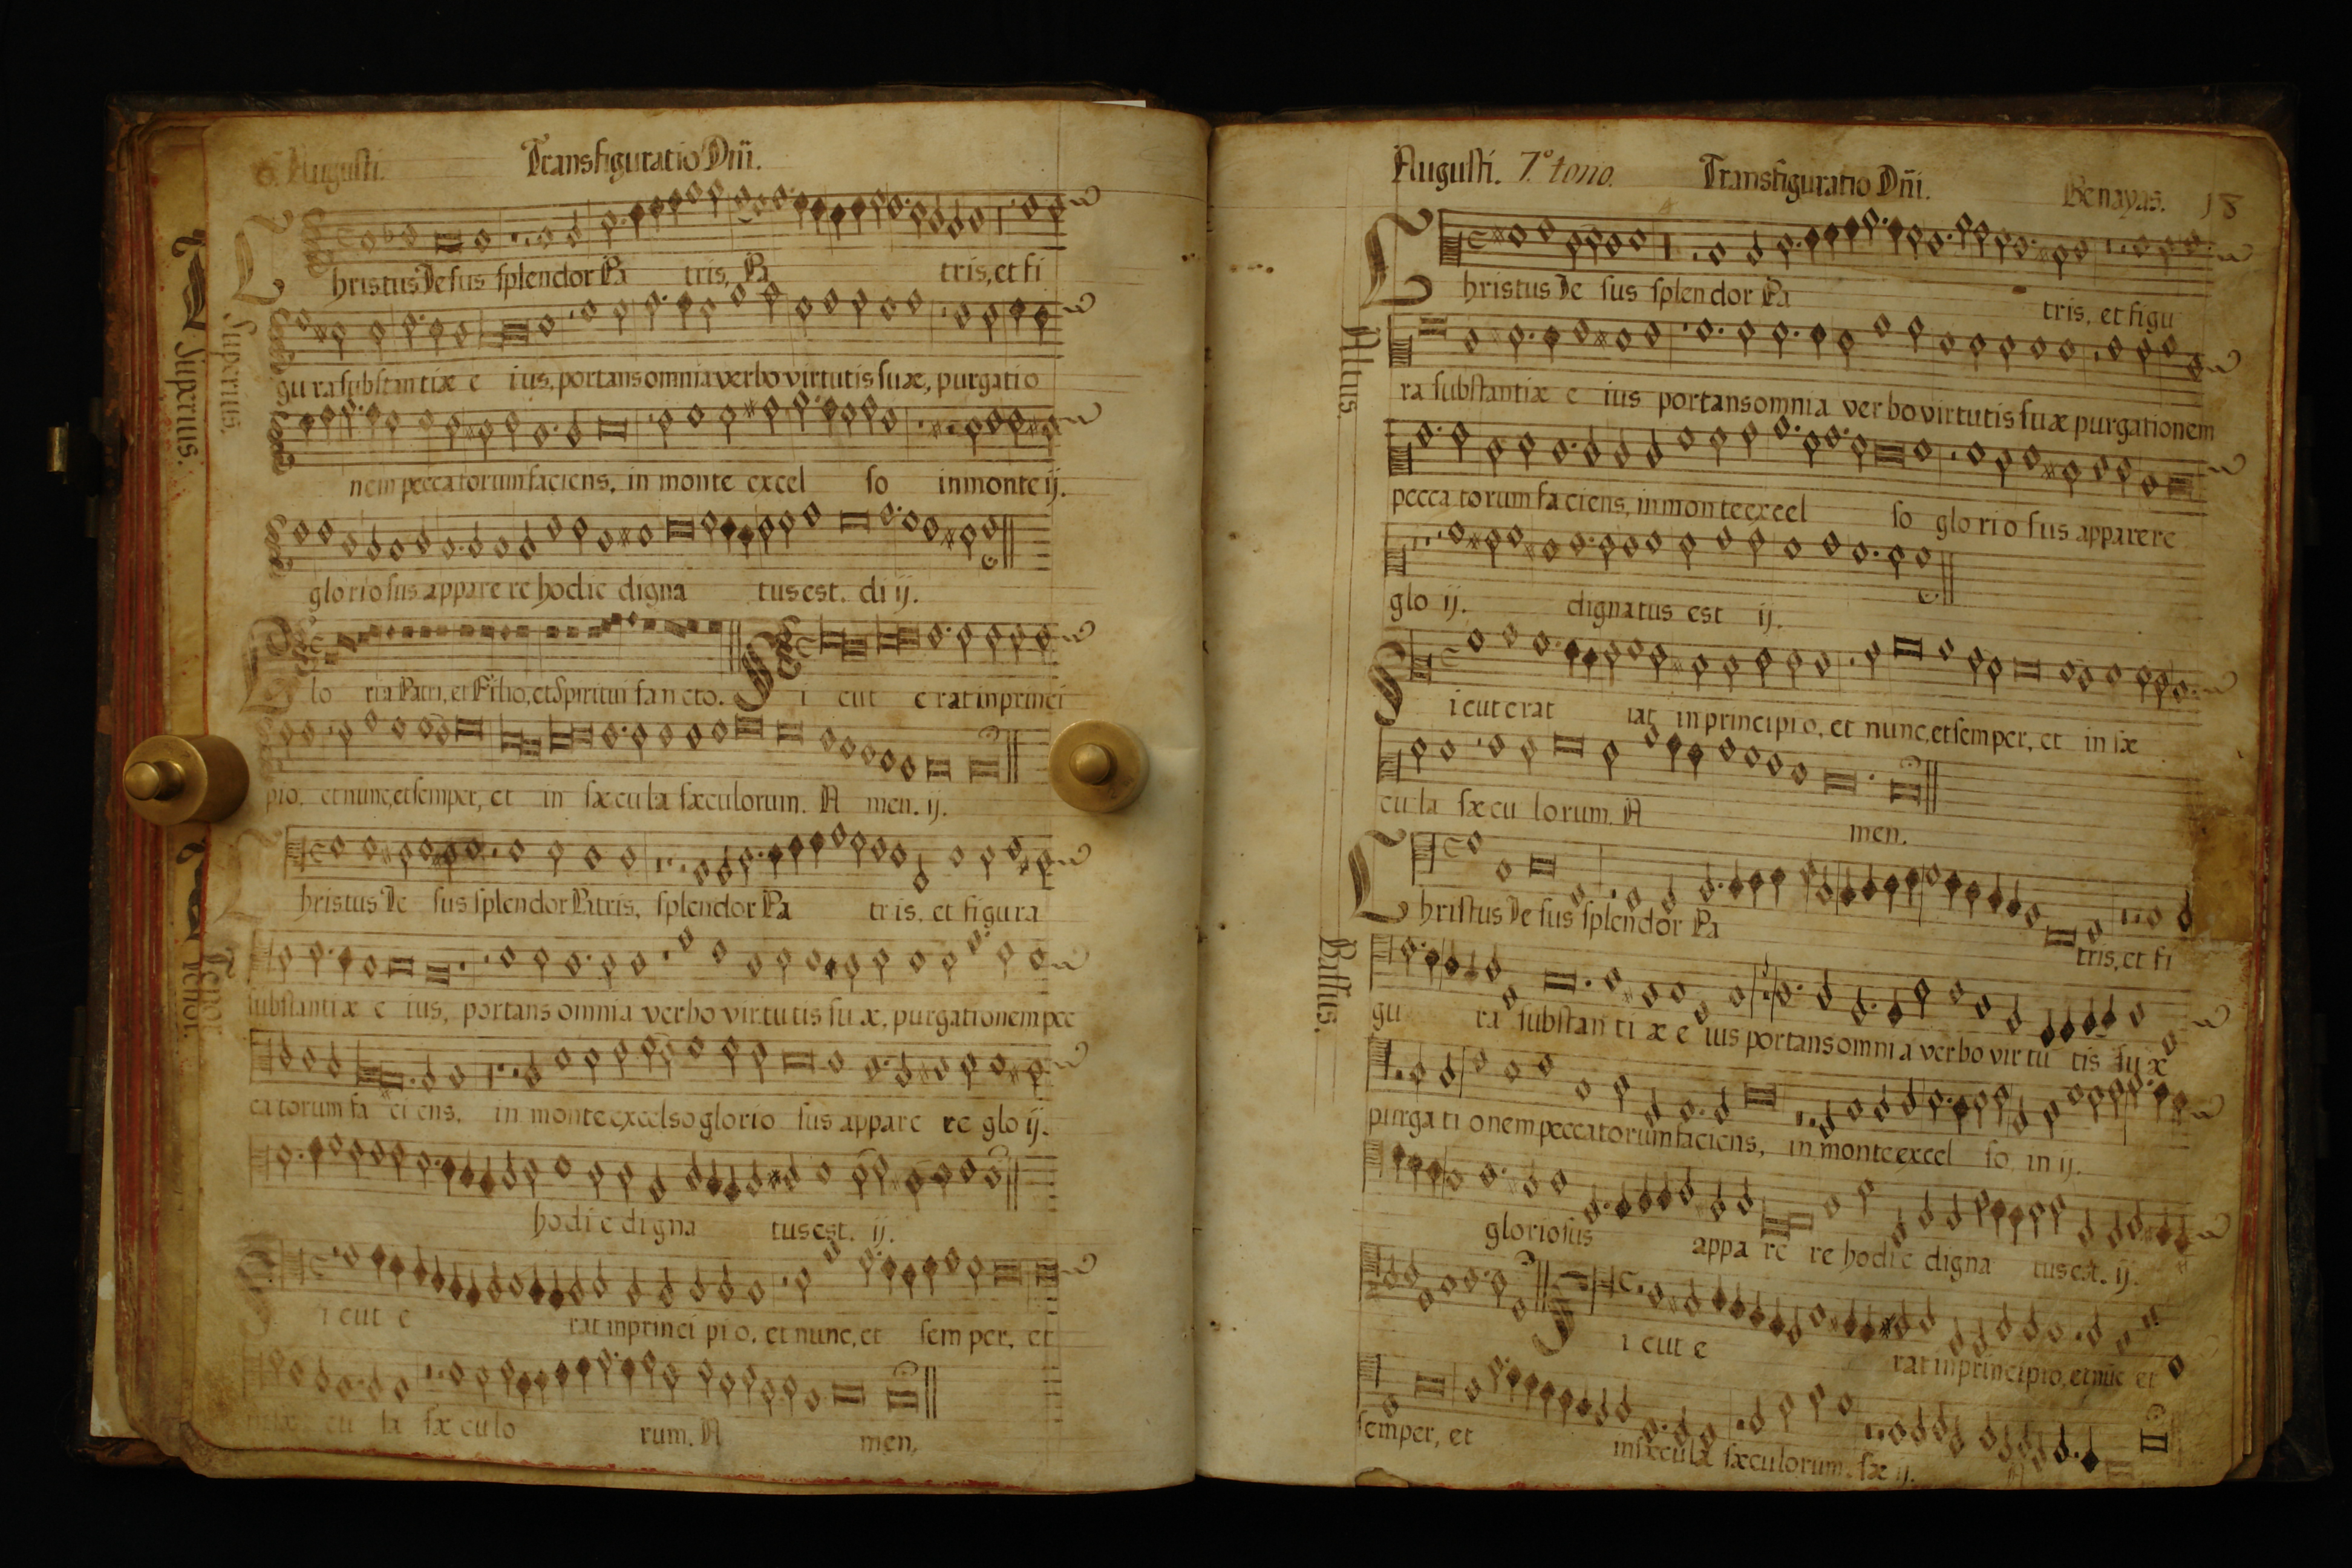 6. Augusti. Transfiguratio Dñi.
Superius.
Superius.
hristus Iesus splendor Pa tris, Pa tris, et fi
gu ra substantiæ e ius, portans omnia verbo virtutis suæ, purgatio
nem peccatorum faciens, in monte excel so in monte ij.
gloriosus appare re hodie digna tus est. di ij.
Glo ria Patri, et Filio, et Spiritui sancto. Si cut erat in princi
pio, et nunc, et semper, et in sæcula sæculorum. A men. ij.
Tenor.
Tenor
hristus Ie sus splendor Patris, splendor Pa tris, et figura
substantiæ e ius, portans omnia verbo virtutis su æ, purgationem pec
catorum fa ci ens, in monte excelso glorio sus appare re glo ij.
hodie digna tus est. ij.
Sicut e rat in princi pi o, et nunc, et sem per, et
cu la sæ culo rum. A men.
Augusti. 7.º tono. Transfiguratio Dñi. Benayas. 18
Altus.
Christus Ie sus splendor Pa tris, et figu
ra substantiæ e ius portans omnia verbo virtutis suæ purgationem
pecca torum faciens, in monte excel so glo rio sus apparere
glo ij. dignatus est ij.
Sicut erat rat in principio, et nunc, et semper, et in sæ
cula sæcu lorum. A men.
Bassus.
Christus Iesus splendor Pa tris, et fi
gu ra substan ti æ e ius portans omnia verbo virtu tis su æ
purga ti onem peccatorum faciens, in monte excel so in ij.
gloriosus appa re re hodie digna tus est. ij.
Sicut e rat in principio, et nũc et
semper, et in sæcula sæculorum. sæ ij. A